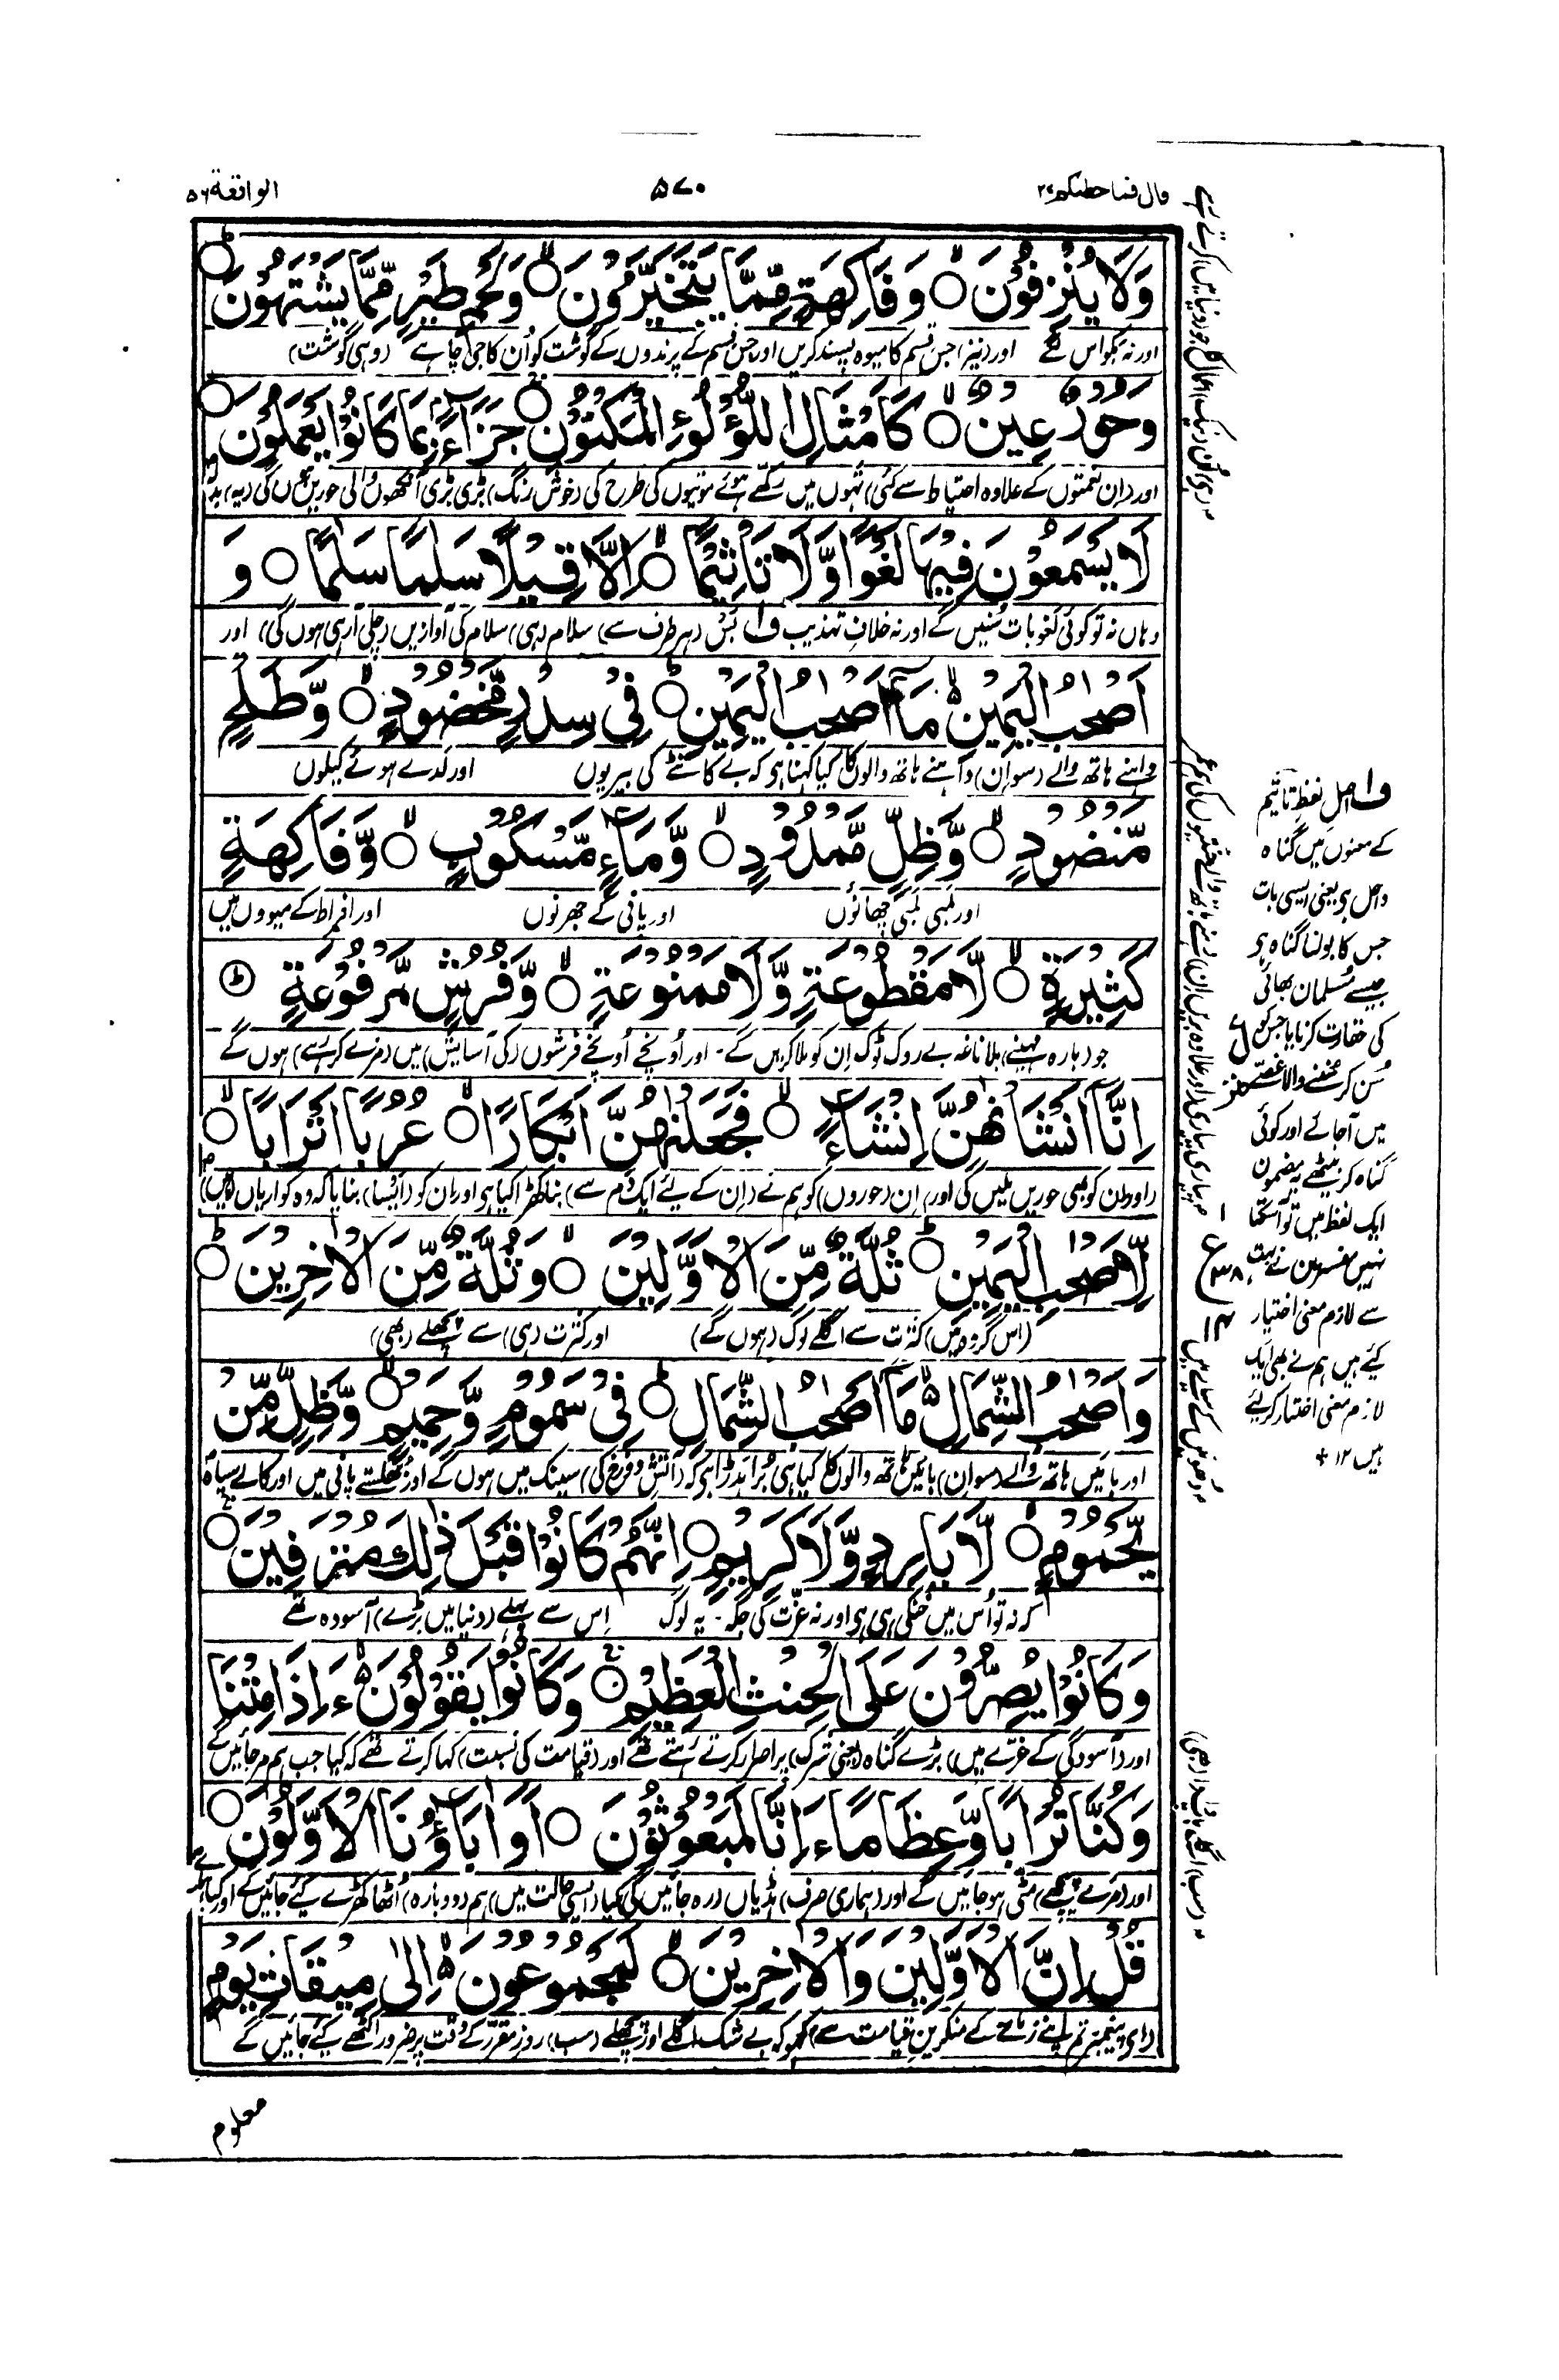 قال فما خطبکم ۲۷
۵۷۰
الواقعة ۵۶
وَلَا يُنْزِفُوْنَ ۙ وَفَاكِهَةٍ مِّمَّا يَتَخَيَّرُوْنَ ۙ وَلَحْمِ طَيْرٍ مِّمَّا يَشْتَهُوْنَ ؕ
اور نہ بکواس لگے اور (نیز) جس قسم کا میوہ پسند کریں اور جس قسم کے پرندوں کے گوشت کو اُن کا جی چاہے (وہی گوشت)
وَحُوْرٌ عِيْنٌ ۙ كَاَمْثَالِ اللُّؤْلُؤِ الْمَكْنُوْنِ ۚ جَزَآءًۢ بِمَا كَانُوْا يَعْمَلُوْنَ
اور (ان نعمتوں کے علاوہ احتیاط سے کئی) تہوں میں رکھے ہوئے موتیوں کی طرح کی (خوش رنگ) بڑی بڑی آنکھوں والی حوریں
لَا يَسْمَعُوْنَ فِيْهَا لَغْوًا وَّلَا تَاْثِيْمًا ۙ اِلَّا قِيْلًا سَلٰمًا سَلٰمًا ○ وَ
وہاں نہ تو کوئی لغو بات سُنیں گے اور نہ خلافِ تہذیب ف۱ بس (ہر طرف سے) سلام (ہی) سلام کی آوازیں (چلی آ رہی ہوں گی) اور
اَصْحٰبُ الْيَمِيْنِ ۙ مَآ اَصْحٰبُ الْيَمِيْنِ ؕ فِيْ سِدْرٍ مَّخْضُوْدٍ ۙ وَّطَلْحٍ
داہنے ہاتھ والے (سو اُن) داہنے ہاتھ والوں کا کیا کہنا ہی کہ بے کانٹے کی بیریوں اور لدے ہوئے کیلوں
مَّنْضُوْدٍ ۙ وَّظِلٍّ مَّمْدُوْدٍ ۙ وَّمَآءٍ مَّسْكُوْبٍ ۙ وَّفَاكِهَةٍ
اور لمبی لمبی چھانوں اور پانی کے جھرنوں اور افراط کے میووں میں
كَثِيْرَةٍ ۙ لَّا مَقْطُوْعَةٍ وَّلَا مَمْنُوْعَةٍ ۙ وَّفُرُشٍ مَّرْفُوْعَةٍ ؕ
بلا ناغہ بے روک ٹوک اِن کو ملا کریں گے۔ اور اُونچے اُونچے فرشوں (کی آسایش) میں (مزے کر رہے) ہوں گے
اِنَّآ اَنْشَاْنٰهُنَّ اِنْشَآءً ۙ فَجَعَلْنٰهُنَّ اَبْكَارًا ۙ عُرُبًا اَتْرَابًا ۙ
(اور وطن کو بھی حوریں ملیں گی اور) اِن (حوروں) کو ہم نے (اِن کے لیے ایک دَم سے) بنا کھڑا کیا ہی اور اِن کو (ایسا) بنایا کہ وہ کواریاں
لِّاَصْحٰبِ الْيَمِيْنِ ؕ ثُلَّةٌ مِّنَ الْاَوَّلِيْنَ ۙ وَثُلَّةٌ مِّنَ الْاٰخِرِيْنَ ؕ
(اس گروہ میں) کثرت سے اگلے لوگ (ہوں گے) اور کثرت (ہی) سے پچھلے (بھی)
وَاَصْحٰبُ الشِّمَالِ ۙ مَآ اَصْحٰبُ الشِّمَالِ ؕ فِيْ سَمُوْمٍ وَّحَمِيْمٍ ۙ وَّظِلٍّ مِّنْ
اور بائیں ہاتھ والے (سو ان) بائیں ہاتھ والوں کا کیا ہی بُرا درا ہی کہ (آتشِ دوزخ کی) سینک میں ہوں گے اور جُھلستے پانی میں اور کالے سیاہ
يَّحْمُوْمٍ ۙ لَّا بَارِدٍ وَّلَا كَرِيْمٍ ○ اِنَّهُمْ كَانُوْا قَبْلَ ذٰلِكَ مُتْرَفِيْنَ ۚ
کہ نہ تو اُس میں خنکی ہی ہی اور نہ عزّت کی جگہ۔ یہ لوگ اِس سے پہلے (دنیا میں بڑے) آسودہ تھے
وَكَانُوْا يُصِرُّوْنَ عَلَى الْحِنْثِ الْعَظِيْمِ ۚ وَكَانُوْا يَقُوْلُوْنَ ۙ ءَاِذَا مِتْنَا
اور (آسودگی کے غرّے میں) بڑے گناہ (یعنی شرک) پر اصرار کرتے رہتے تھے اور (قیامت کی نسبت) کہا کرتے تھے کہ کیا جب ہم مر جائیں گے
وَكُنَّا تُرَابًا وَّعِظَامًا ءَاِنَّا لَمَبْعُوْثُوْنَ ○ اَوَاٰبَآؤُنَا الْاَوَّلُوْنَ ○
اور (مرے پیچھے) مٹی ہو جائیں گے اور (ہماری صرف) ہڈیاں (رہ جائیں گی کیا ایسی حالت میں) ہم (دوبارہ) اُٹھا کھڑے کیے جائیں گے اور کیا ہمارے
قُلْ اِنَّ الْاَوَّلِيْنَ وَالْاٰخِرِيْنَ ۙ لَمَجْمُوْعُوْنَ ۙ اِلٰى مِيْقَاتِ يَوْمٍ
(ای پیغمبر تم اپنے زمانے کے منکرینِ قیامت سے) کہو کہ بے شک اگلے اور پچھلے (سب) روزِ مقرّر کے وقت پر ضرور اکٹھے کیے جائیں گے
معلوم
ف۱ اصل لفظ تاثیم
کے معنوں میں گناہ
داخل ہی یعنی ایسی بات
جس کا بولنا گناہ ہو
جیسے مُسلمان بھائی
کی حقارت کرنا یا جس کو
سُن کر سُننے والا غصّے
میں آجائے اور کوئی
گناہ کر بیٹھے یہ مضمون
ایک لفظ میں تو آسکتا
نہیں مفسروں نے بہت
سے لازم معنی اختیار
کیے ہیں ہم نے بھی ایک
لازم معنی اختیار کر لیے
ہیں ۱۲ +